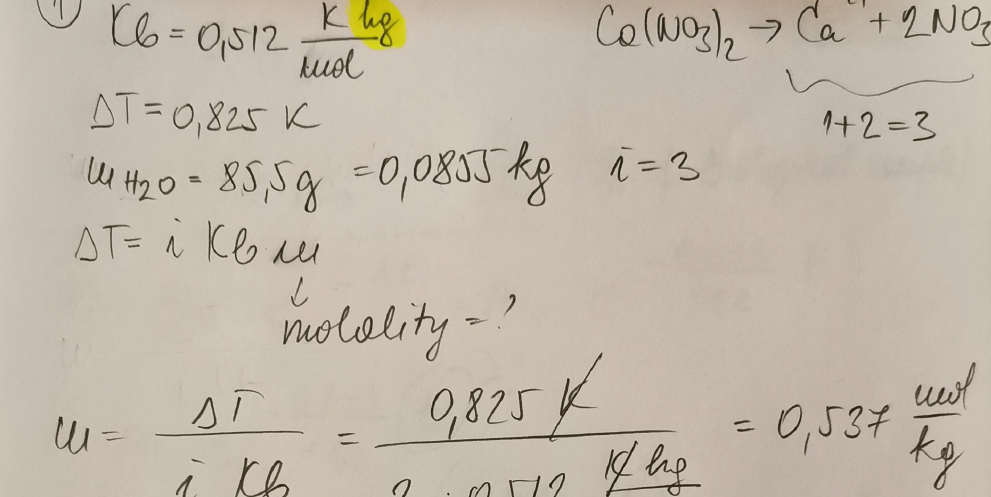 1
Kb = 0,512 K kg / mol
Ca(NO3)2 → Ca + 2NO3
1+2=3
ΔT = 0,825 K
mH2O = 85,5g = 0,0855 kg i = 3
ΔT = i Kb m
↓
molality = ?
m = ΔT / i Kb = 0,825 K / 3 · 0,512 K kg = 0,537 mol / kg